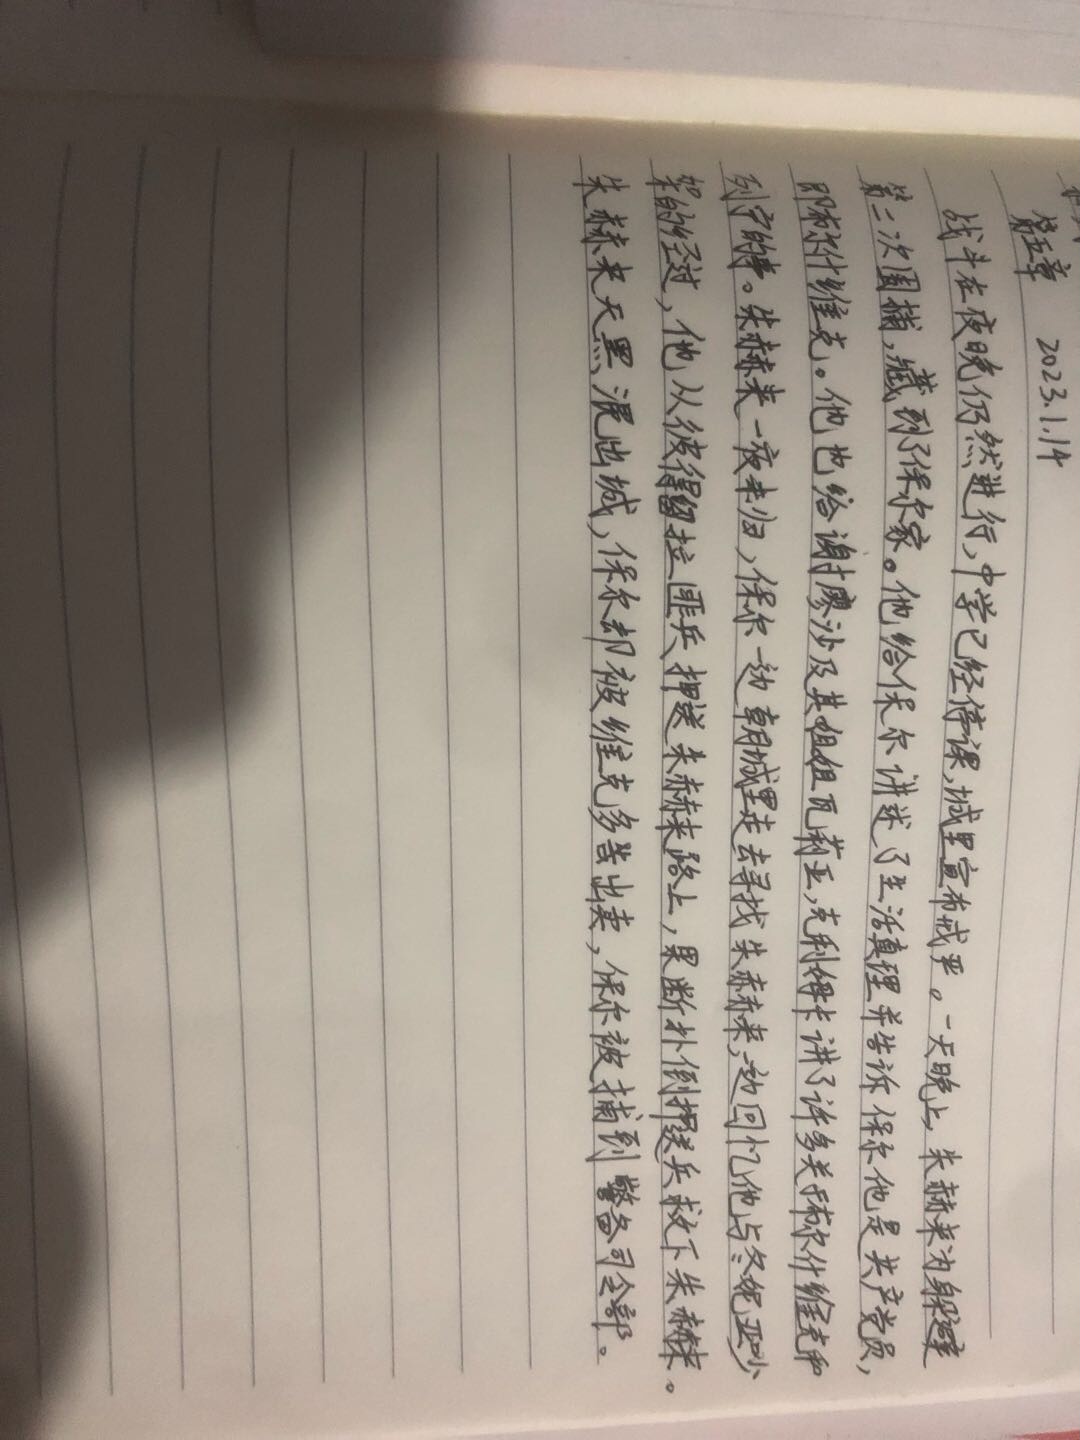 第五章 2023.1.14
战斗在夜晚仍然进行,中学已经停课,城里宣布戒严。一天晚上,朱赫来为躲避
第二次围捕,藏到了保尔家。他给保尔讲述了生活真理并告诉保尔他是共产党员,
即布尔什维克。他也给谢廖沙及其姐姐瓦莉亚,克利姆卡讲了许多关于布尔什维克和
列宁的事。朱赫来一夜未归,保尔一边朝城里走去寻找朱赫来,一边回忆他与冬妮亚吵
架的经过,他从彼得留拉匪兵押送朱赫来路上,果断扑倒押送兵救下朱赫来。
朱赫来天黑混出城,保尔却被维克多告出卖,保尔被捕到警备司令部。